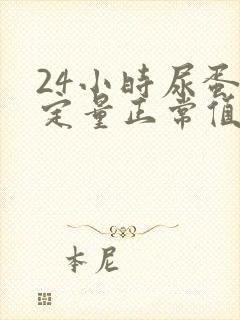 24小時尿蛋
定量正常值
本尼